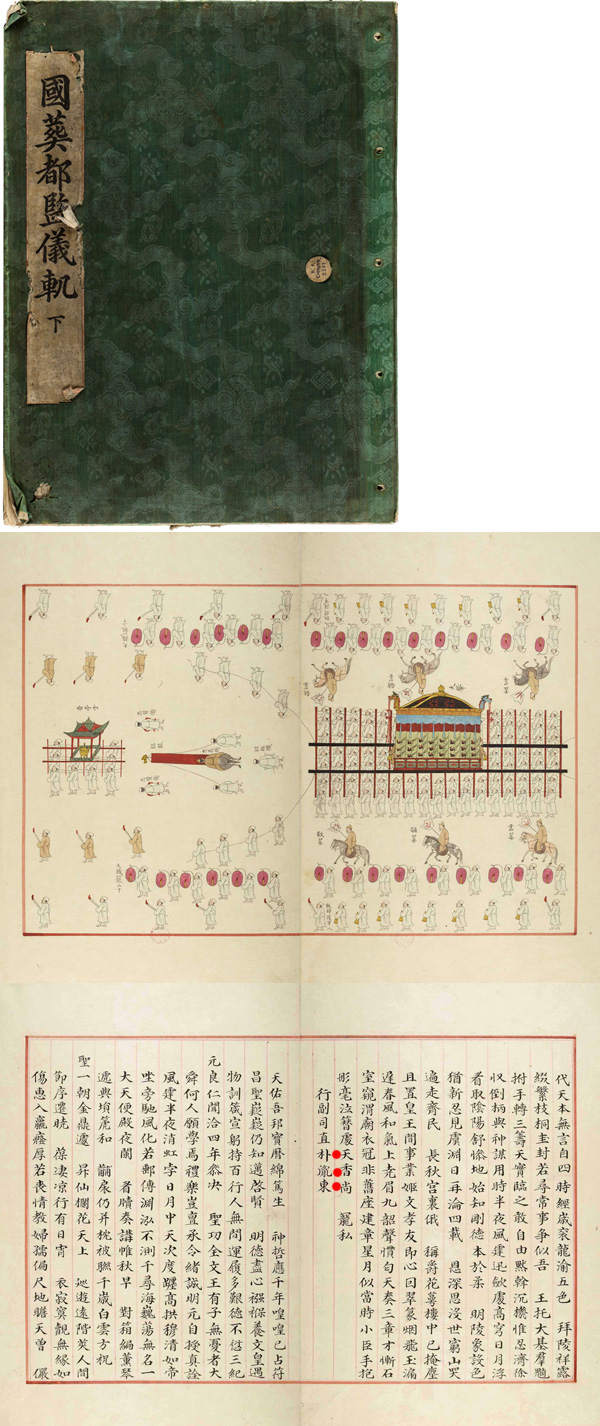 國葬都監儀軌
下
代天本無言自四時經歲衮龍渝五色 拜陵祥露
綴繁枝桐圭封若尋常事爭似吾 王托大基羣黎
拊手轉三籌天實臨之敢自由黙幹沉機惟忍濟除
倒柄與神謀用時半夜風霆迅斂處高穹日月浮
看取陰陽舒慘地始知剛德本於柔 明陵象設色
猶新忍見虞淵日再淪四載 恩深思沒世窮山哭
遍走齊民 長秋宮裏俄 稱爵花萼樓中已掩塵
且置皇王間事業姬文孝友即心因翠篆烟飛玉漏
遲春風和氣上堯眉九韶聲慣勻天奏三章才慚石
室窺渭廟衣冠非舊座建章星月似當時小臣手抱
彤毫泣簪處天香尙 籠私
行副司直朴胤東
天佑吾邦寶曆綿篤生 神哲應千年喤喤已占符
昌聖嶷嶷仍知邁啓賢 明德盡心襁褓養文皇遇
物訓箴宣躬持百行人無間運履多艱德不愆三紀
元良仁聞洽四年叅決 聖功全文王有子無憂者大
舜何人願學焉禮樂豈亶承令緖誠明元自授眞詮
風霆半夜消虹孛日月中天次度躔高拱穆清如帝
坐旁馳風化若郵傳淵泓不測千尋海巍蕩無名一
大天便殿夜闌 者牘奏講帷秋早 對箱編薰琴
遞與塤箎和 黼扆仍幷梡被聯千歲白雲方祝
聖一朝金鼎遽 昇仙攔花天上 巡遊遠階蓂人間
節序遷曉 葆凄凉行有日宵 衣寂寞覩無緣如
傷惠入癃厚若喪情教婦孺偏尺地瞻天曾 儼